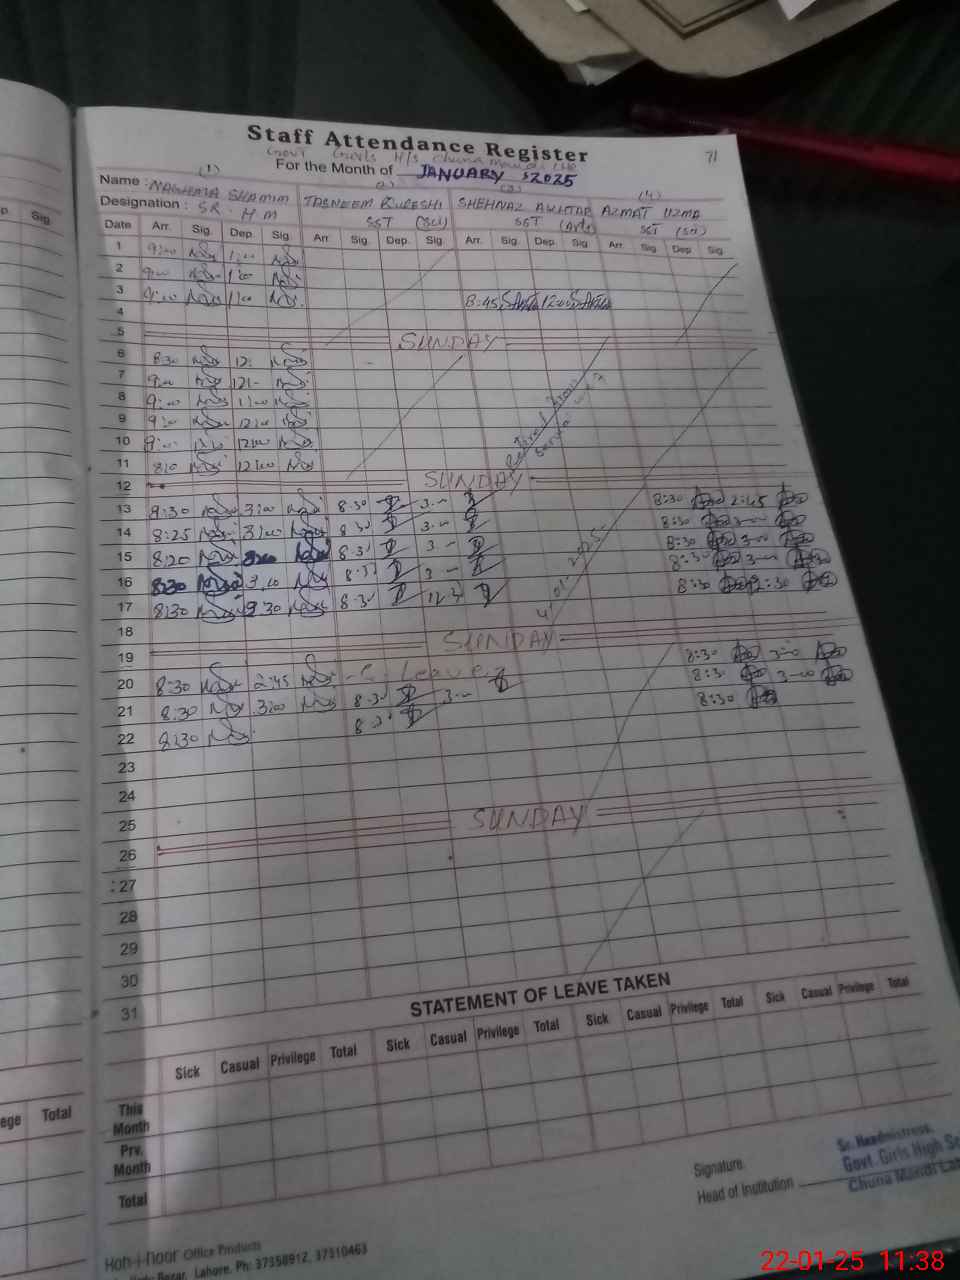 Staff Attendance Register
71
Govt Girls H/S Chuna Mandi Lhr
For the Month of JANUARY 2025
(1) (2) (3) (4)
Name: NAGHMA SHAMIM TASNEEM QURESHI SHEHNAZ AKHTAR AZMAT UZMA
Designation: SR. H M SST (Sci) SST (Arts) SST (Sci)
Date Arr. Sig. Dep. Sig. Arr. Sig. Dep. Sig. Arr. Sig. Dep. Sig. Arr. Sig. Dep. Sig.
1 9:00 1:00
2 9:00 1:00
3 9:00 1:00 8:45 12:00
4
5 SUNDAY
6 8:30 12:
7 9:00 12:-
8 9:00 1:00
9 9:00 12:00
10 9:00 12:00
11 12:00
12 SUNDAY
13 8:30 3:00 8:30 3-00 8:30 2:45
14 8:25 3:00 8:30 3-00 8:30 3-00
15 8:20 3:00 8:30 3- 8:30 3-00
16 8:30 3:00 8:30 3- 8:30 3-00
17 8:30 8:30 12:3 8:30 12:30
18
19 SUNDAY
20 8:30 2:45 C. Leave 8:30 3-00
21 8:30 3:00 8:30 3-00 8:30 3-00
22 8:30 8:30 8:30
23
24
25 SUNDAY
26
27
28
29
30
31
STATEMENT OF LEAVE TAKEN
Sick Casual Privilege Total Sick Casual Privilege Total Sick Casual Privilege Total Sick Casual Privilege Total
This Month
Prv. Month
Total
Signature
Head of Institution
Sr. Headmistress
Govt. Girls High Sc
Chuna Mandi Lah
Koh-i-noor Office Products
Bazar, Lahore. Ph: 37358912, 37310463
p. Sig.
ege Total
22-01-25 11:38